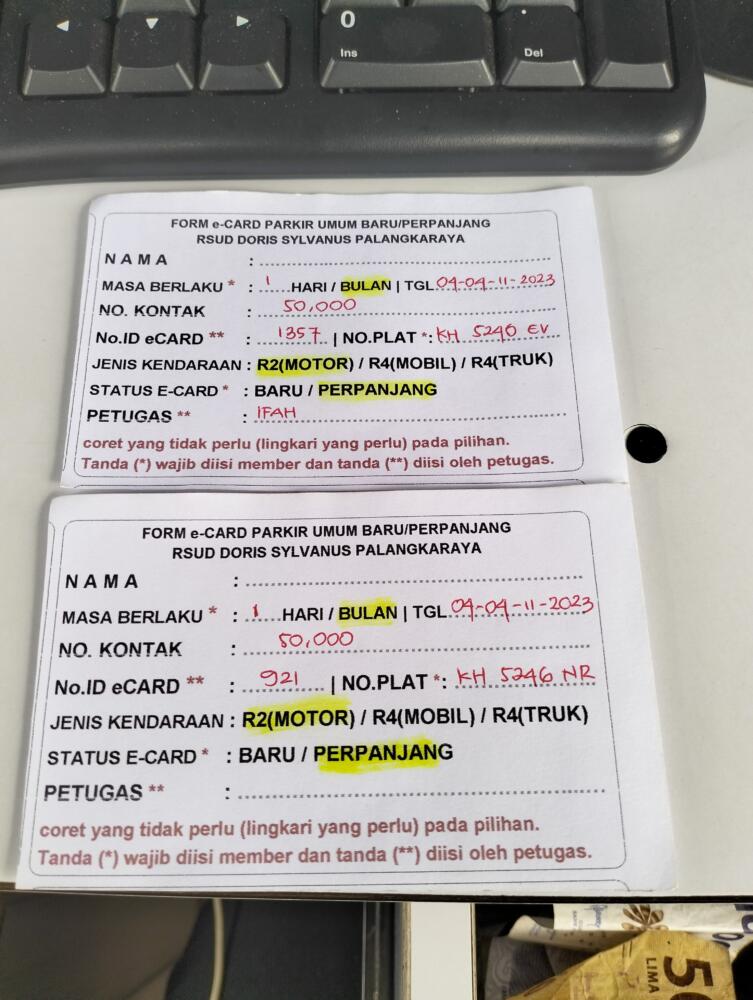 0
Ins
Del
FORM e-CARD PARKIR UMUM BARU/PERPANJANG
RSUD DORIS SYLVANUS PALANGKARAYA
NAMA :
MASA BERLAKU * : 1 HARI / BULAN | TGL 04-04-11-2023
NO. KONTAK : 50,000
No.ID eCARD ** : 1357 | NO.PLAT *: KH 5246 EV
JENIS KENDARAAN : R2(MOTOR) / R4(MOBIL) / R4(TRUK)
STATUS E-CARD * : BARU / PERPANJANG
PETUGAS ** : IFAH
coret yang tidak perlu (lingkari yang perlu) pada pilihan.
Tanda (*) wajib diisi member dan tanda (**) diisi oleh petugas.
FORM e-CARD PARKIR UMUM BARU/PERPANJANG
RSUD DORIS SYLVANUS PALANGKARAYA
NAMA :
MASA BERLAKU * : 1 HARI / BULAN | TGL 04-04-11-2023
NO. KONTAK : 50,000
No.ID eCARD ** : 921 | NO.PLAT *: KH 5246 NR
JENIS KENDARAAN : R2(MOTOR) / R4(MOBIL) / R4(TRUK)
STATUS E-CARD * : BARU / PERPANJANG
PETUGAS ** :
coret yang tidak perlu (lingkari yang perlu) pada pilihan.
Tanda (*) wajib diisi member dan tanda (**) diisi oleh petugas.
5
LIMA